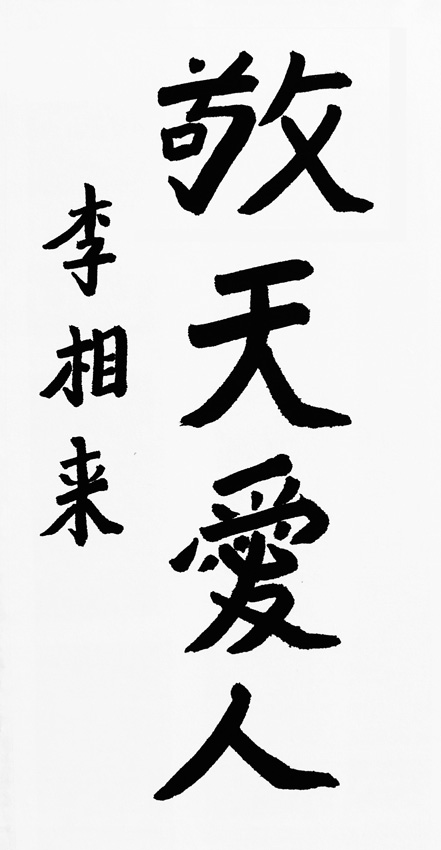 敬天愛人
李相来